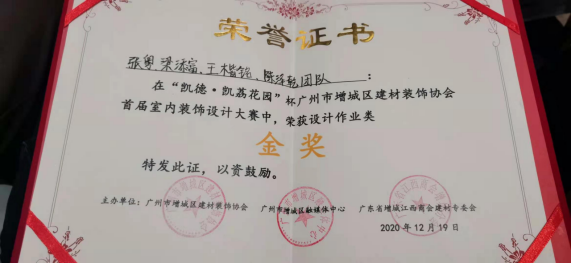 荣誉证书
张粤、梁沐富、王楷铭、陈泽乾团队：
在“凯德·凯荔花园”杯广州市增城区建材装饰协会
首届室内装饰设计大赛中，荣获设计作业类
金奖
特发此证，以资鼓励。
主办单位：广州市增城区建材装饰协会 广州市增城区融媒体中心 广东省增城江西商会建材专委会
2020年12月19日